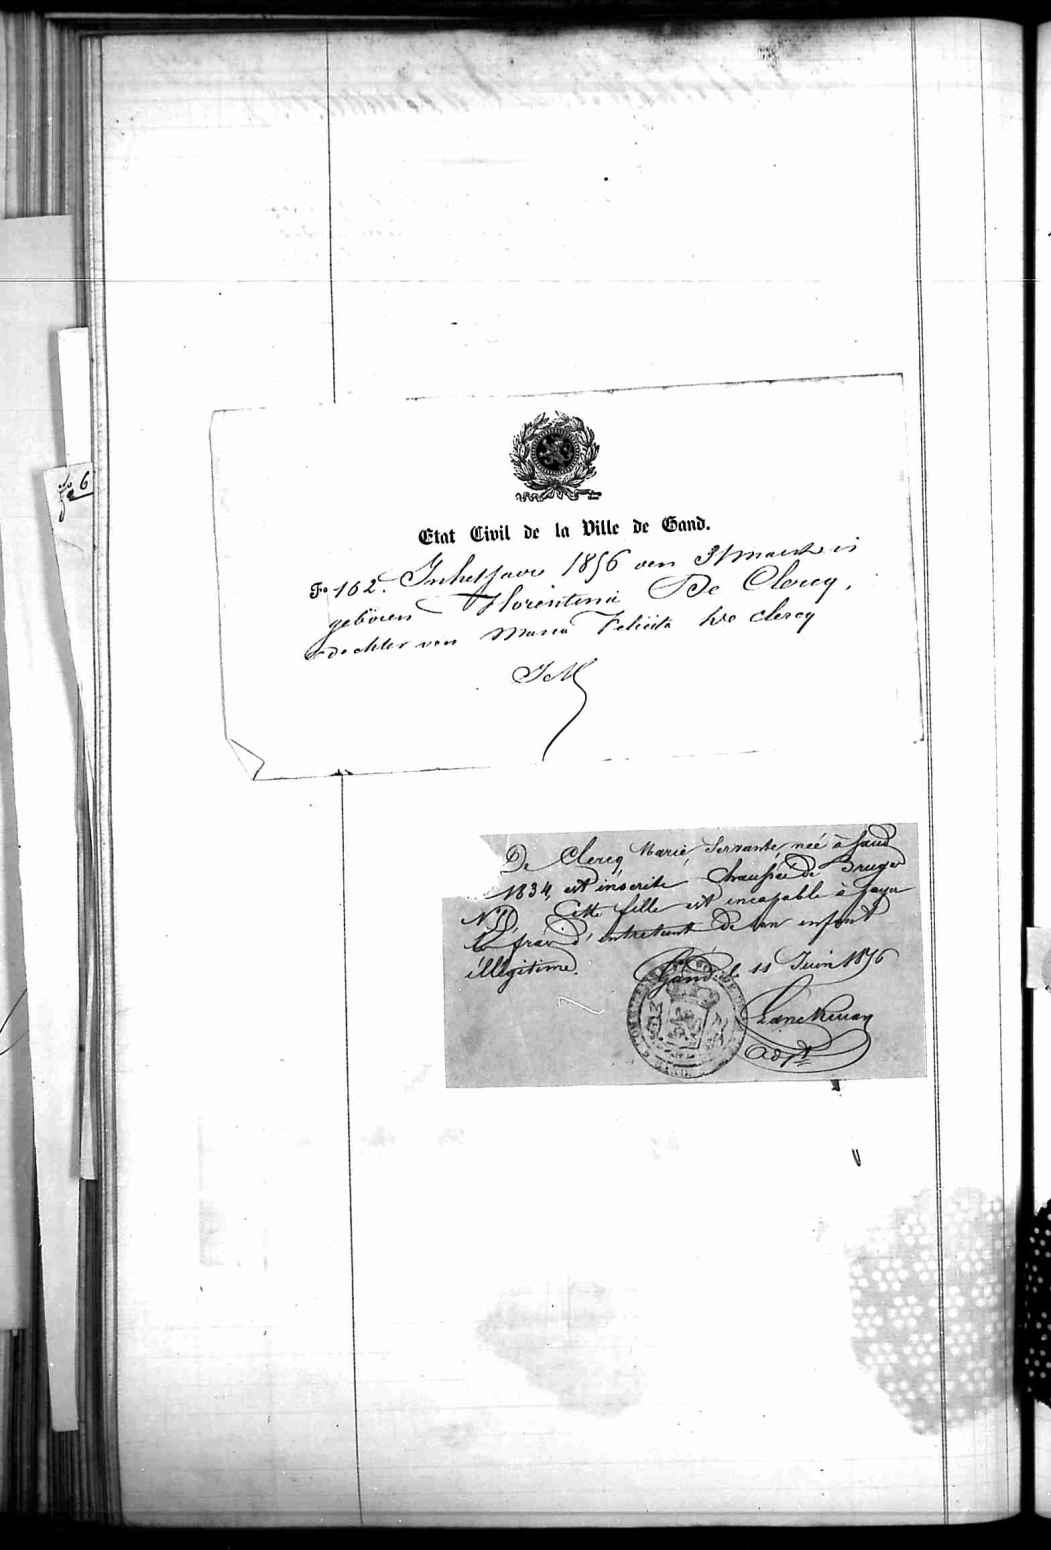 fo 6
Etat Civil de la Ville de Gand.
Fo 162. In het jaar 1856 den 31 maart is
geboren Florentina De Clercq,
dochter van Maria Felicita De Clercq
De Clercq Marie, Servante, née à Gand
1834, est inscrite Chaussée de Bruges
No Cette fille est incapable à payer
les frais d'entretient de son enfant
illégitime.
Gand, le 11 Juin 1856
adjt